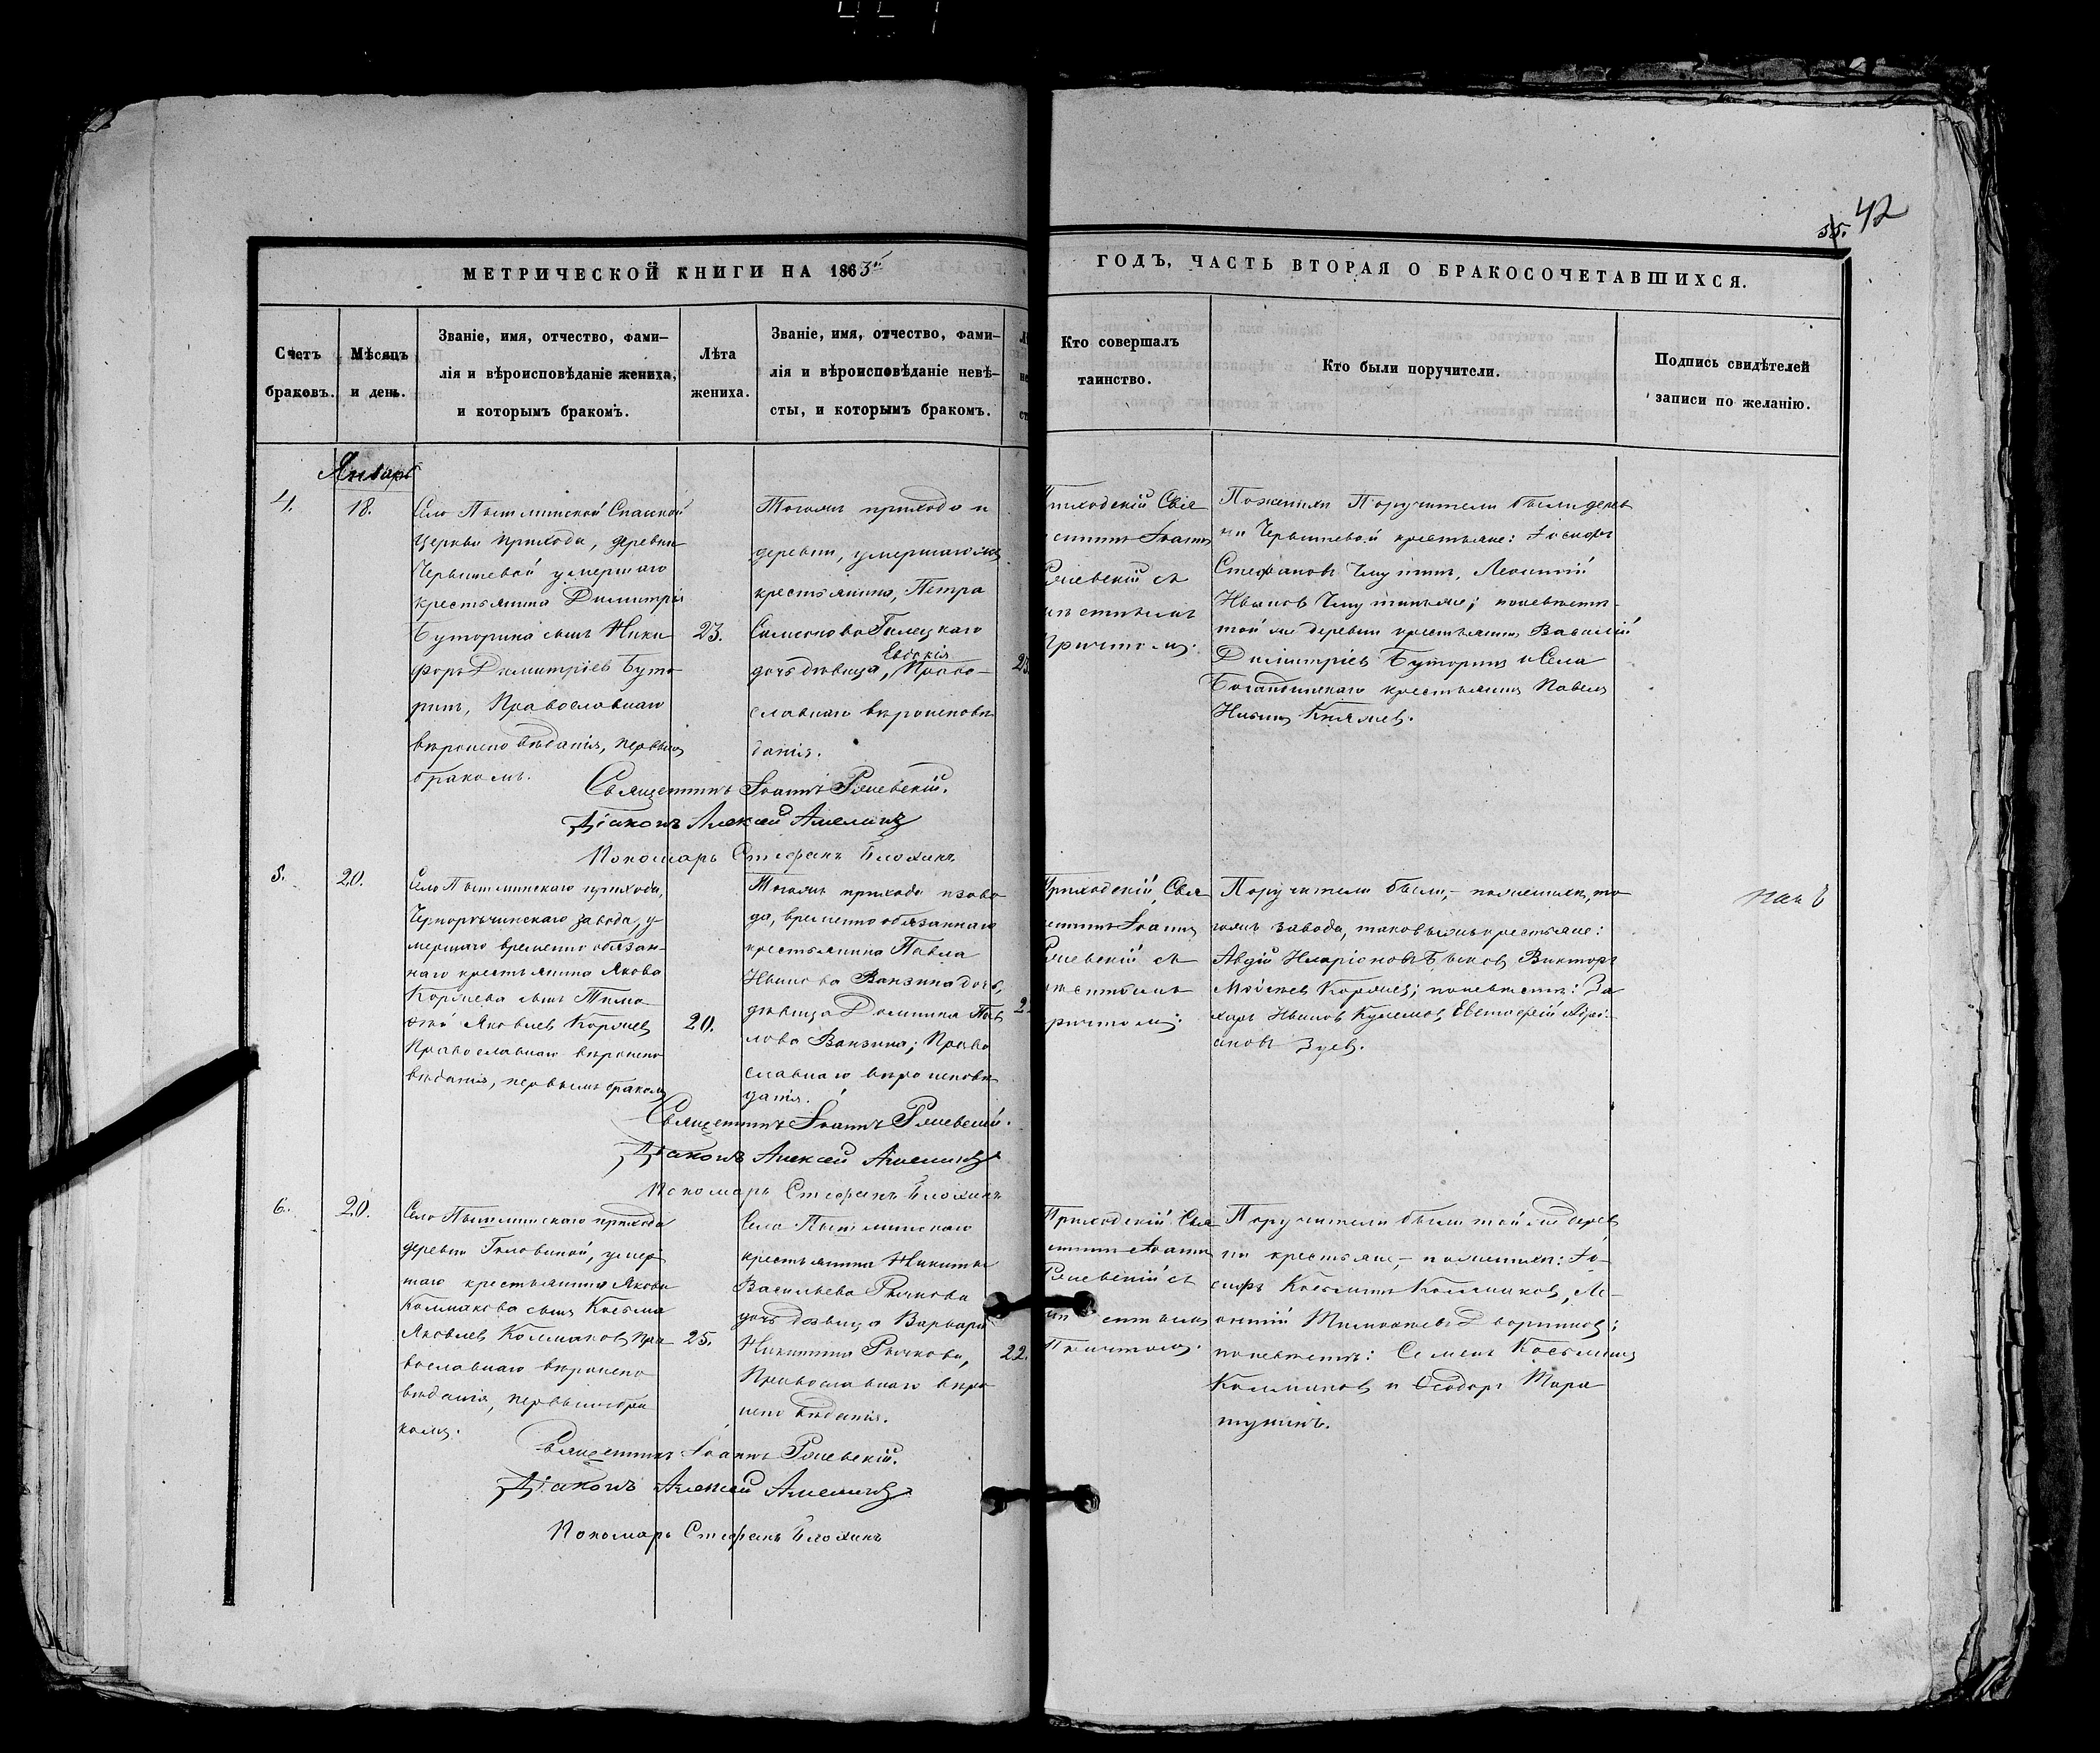 55. 42
МЕТРИЧЕСКОЙ КНИГИ НА 1863й
ГОДЪ, ЧАСТЬ ВТОРАЯ О БРАКОСОЧЕТАВШИХСЯ.
Счетъ
браковъ.
Мѣсяцъ
и день.
Званіе, имя, отчество, фами–
лія и вѣроисповѣданіе жениха,
и которымъ бракомъ.
Лѣта
жениха.
Званіе, имя, отчество, фами–
лія и вѣроисповѣданіе невѣ–
сты, и которымъ бракомъ.
Кто совершалъ
таинство.
Кто были поручители.
Подпись свидѣтелей
записи по желанію.
Январь
4.
18.
Село Пышминской Спасской
церкви прихода, деревни
Червишевой умершаго
крестьянина Димитрія
Буторина сынъ Ники
форъ Димитріев Буто
ринъ, Православнаго
вѣроисповѣданія, первымъ
бракомъ.
23.
Тогожъ прихода и
деревни, умершаго
крестьянина, Петра
Евдокія
дочь дѣвица, Право–
славнаго вѣроисповѣ
данія.
23
Приходскій Свя
Іоаннъ
съ
Причтомъ.
По женихѣ Поручители были дерев
ни Червишевой крестьяне: Іосифъ
Стефановъ Леонтій
Ивановъ по невѣстѣ
той же деревни крестьянинъ Василій
Димитріев Буторинъ и Села
Богандинскаго крестьянинъ Павелъ
Священникъ Іоаннъ
Діаконъ Алексѣй Амелинъ
Пономарь Стефанъ Блохинъ
5.
20.
Село Пышминскаго прихода,
Чернорѣчинскаго завода, у
мершаго временно обязан–
наго крестьянина Якова
Корлиева сынъ Тимо
фей Яковлев
Православнаго вѣроиспо
вѣданія, первымъ бракомъ
20.
Тогожъ прихода и заво
да, временно обязаннаго
крестьянина Павла
Иванова Ванзина дочь,
дѣвица Домника Пав
лова Ванзина; Право
славнаго вѣроисповѣ
данія.
2
Приходскій Свя
Іоаннъ
съ
Причтомъ.
Поручители были,– по женихѣ, то
гожъ завода, таковыежъ крестьяне:
Авдій Иларіоновъ Быков, Викторъ
по невѣстѣ: За
харъ Иванов
Зуев.
Священникъ Іоаннъ
Діаконъ Алексѣй Амелинъ
Пономарь Стефанъ Блохинъ
6.
20.
Село Пышминскаго прихода
деревни Головиной, умер
шаго крестьянина Якова
Колмакова сынъ Косьма
Яковлев Колмаков, Пра
вославнаго вѣроиспо
вѣданія, первымъ бра
комъ.
25.
Села Пышминскаго
крестьянина Никиты
Васильева Рычкова
дочь дѣвица Варвара
Никитина Рычкова,
Православнаго вѣро
исповѣданія.
22.
Приходскій Свя
Іоаннъ
съ
Причтомъ.
Поручители были той же дерев
ни крестьяне,– по женихѣ: Іо–
сифъ Косьминъ Колмаков, Ле–
онтій Тимофеевъ Дворников;
по невѣстѣ: Семенъ Косьминъ
Колмаков и Ѳеодоръ Тара
тунинъ.
Священникъ Іоаннъ
Діаконъ Алексѣй Амелинъ
Пономарь Стефанъ Блохинъ